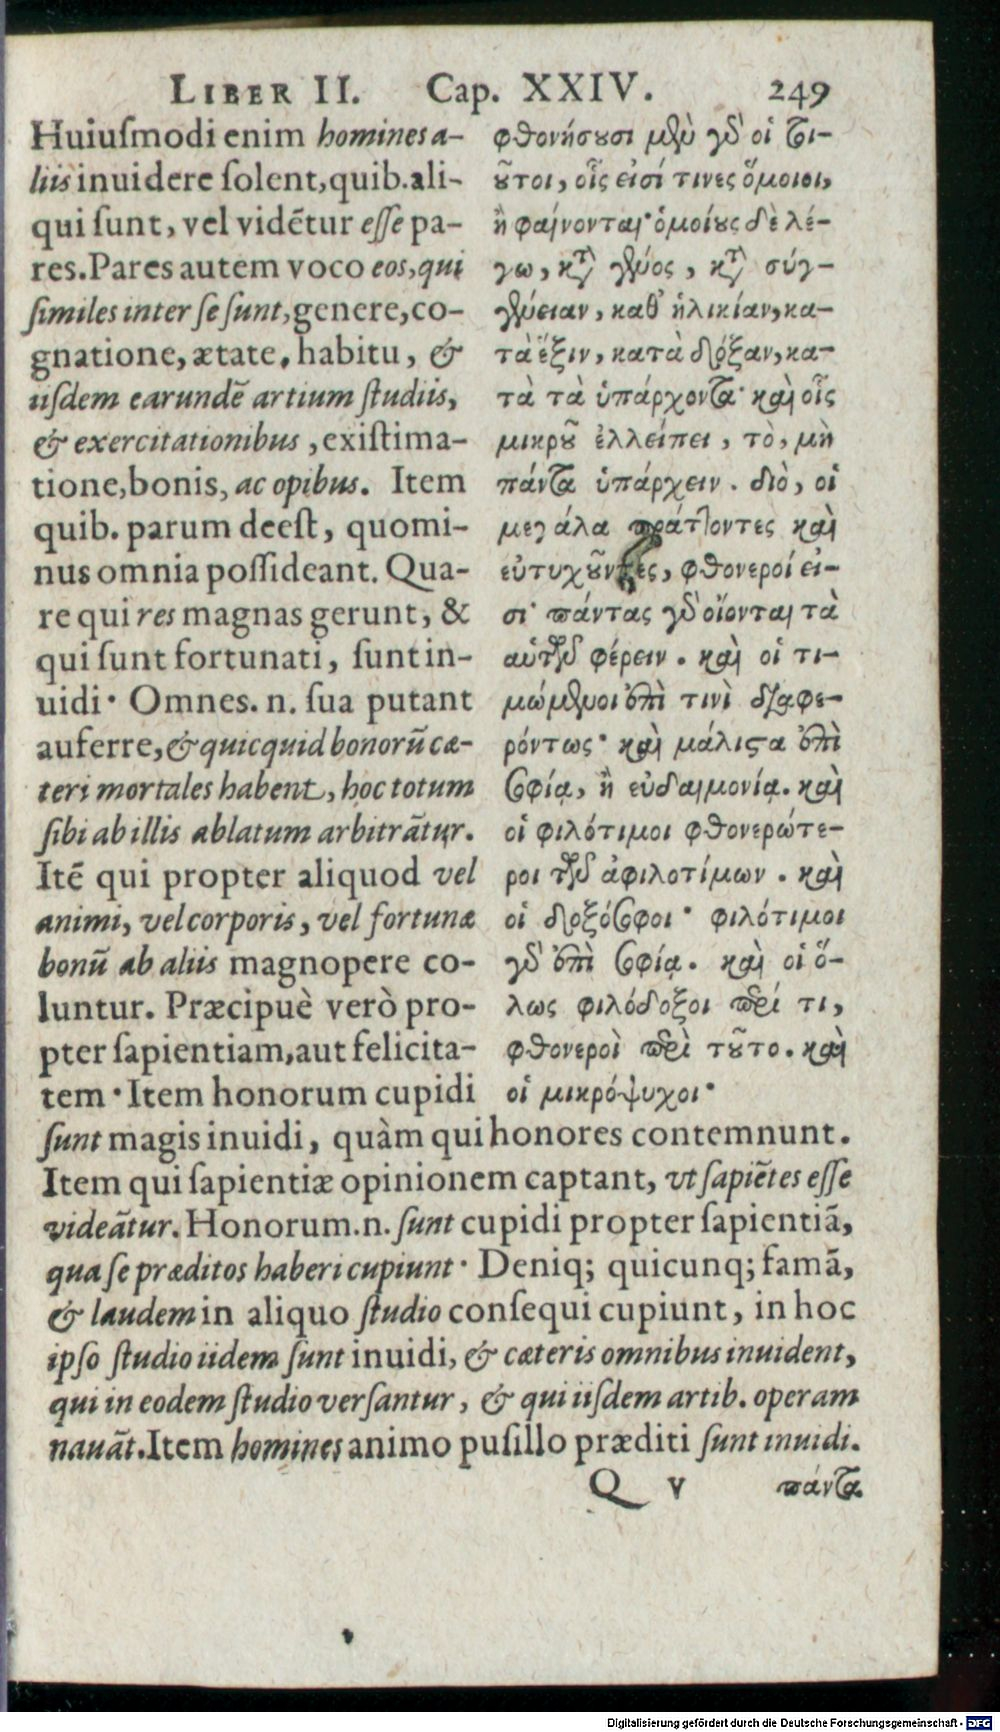 LIBER II. Cap. XXIV. 249
Huiuſmodi enim homines a-
liis inuidere ſolent, quib. ali-
qui ſunt, vel vidẽtur eſſe pa-
res. Pares autem voco eos, qui
ſimiles inter ſe ſunt, genere, co-
gnatione, ætate, habitu, &
iiſdem earundẽ artium ſtudiis,
& exercitationibus, exiſtima-
tione, bonis, ac opibus. Item
quib. parum deeſt, quomi-
nus omnia poſſideant. Qua-
re qui res magnas gerunt, &
qui ſunt fortunati, ſunt in-
uidi· Omnes. n. ſua putant
auferre, & quicquid bonorũ cæ-
teri mortales habent, hoc totum
ſibi ab illis ablatum arbitrãtur.
Itẽ qui propter aliquod vel
animi, vel corporis, vel fortunæ
bonũ ab aliis magnopere co-
luntur. Præcipuè verò pro-
pter ſapientiam, aut felicita-
tem· Item honorum cupidi
ſunt magis inuidi, quàm qui honores contemnunt.
Item qui ſapientiæ opinionem captant, vt ſapiẽtes eſſe
videãtur. Honorum. n. ſunt cupidi propter ſapientiã,
qua ſe præditos haberi cupiunt· Deniq; quicunq; famã,
& laudem in aliquo ſtudio conſequi cupiunt, in hoc
ipſo ſtudio iidem ſunt inuidi, & cæteris omnibus inuident,
qui in eodem ſtudio verſantur, & qui iiſdem artib. operam
nauãt. Item homines animo puſillo præditi ſunt inuidi.
φθονήσουσι μὲν γὰρ οἱ τοι-
οῦτοι, οἷς εἰσί τινες ὅμοιοι,
ἢ φαίνονται· ὁμοίους δὲ λέ-
γω, κατὰ γένος, κατὰ σύγ-
γένειαν, καθ' ἡλικίαν, κα-
τὰ ἕξιν, κατὰ δόξαν, κα-
τὰ τὰ ὑπάρχοντα· καὶ οἷς
μικροῦ ἐλλείπει, τὸ, μὴ
πάντα ὑπάρχειν. διὸ, οἱ
μεγάλα πράττοντες καὶ
εὐτυχοῦντες, φθονεροί εἰ-
σι· πάντας γὰρ οἴονται τὰ
αὑτῶν φέρειν. καὶ οἱ τι-
μώμενοι ἐπὶ τινὶ διαφε-
ρόντως· καὶ μάλιστα ἐπὶ
σοφίᾳ, ἢ εὐδαιμονίᾳ. καὶ
οἱ φιλότιμοι φθονερώτε-
ροι τῶν ἀφιλοτίμων. καὶ
οἱ δοξόσοφοι· φιλότιμοι
γὰρ ἐπὶ σοφίᾳ. καὶ οἱ ὅ-
λως φιλόδοξοι περί τι,
φθονεροὶ περὶ τοῦτο. καὶ
οἱ μικρόψυχοι·
Q v πάντα
Digitalisierung gefördert durch die Deutsche Forschungsgemeinschaft - DFG